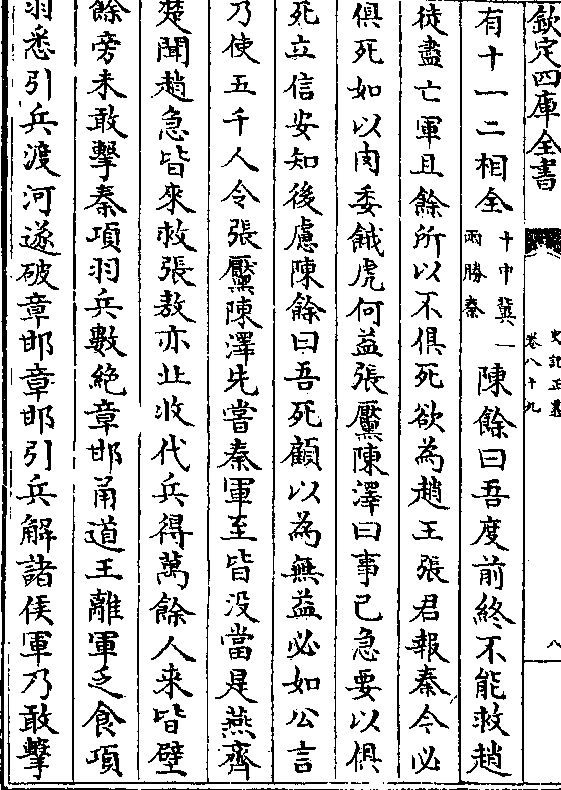 欽定四庫全書
史記正義
卷八十九
八
有十一二相全
十中冀一
兩勝秦
陳餘曰吾度前終不能救趙
徒盡亡軍且餘所以不俱死欲為趙王張君報秦今必
俱死如以肉委餓虎何益張黶陳澤曰事已急要以俱
死立信安知後慮陳餘曰吾死顧以為無益必如公言
乃使五千人令張黶陳澤先嘗秦軍至皆没當是燕齊
楚聞趙急皆來救張敖亦北收代兵得萬餘人来皆壁
餘旁未敢擊秦項羽兵數絶章邯甬道王離軍乏食項
羽悉引兵渡河遂破章邯章邯引兵解諸侯軍乃敢擊